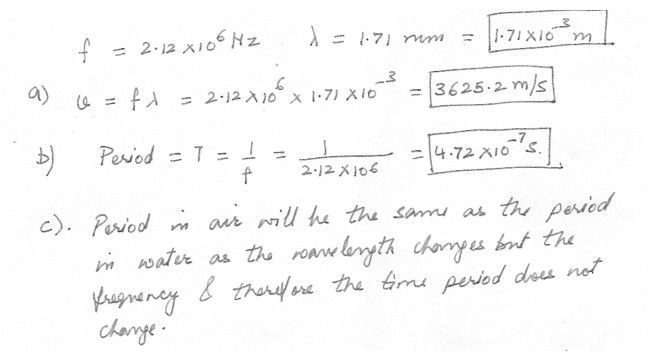 f = 2.12 x10⁶ Hz λ = 1.71 mm = 1.71 X10⁻³ m
a) v = fλ = 2.12 X10⁶ x 1.71 X10⁻³ = 3625.2 m/s
b) Period = T = 1/f = 1/2.12 X106 = 4.72 X10⁻⁷ s.
c). Period in air will be the same as the period
in water as the wavelength changes but the
frequency & therefore the time period does not
change.